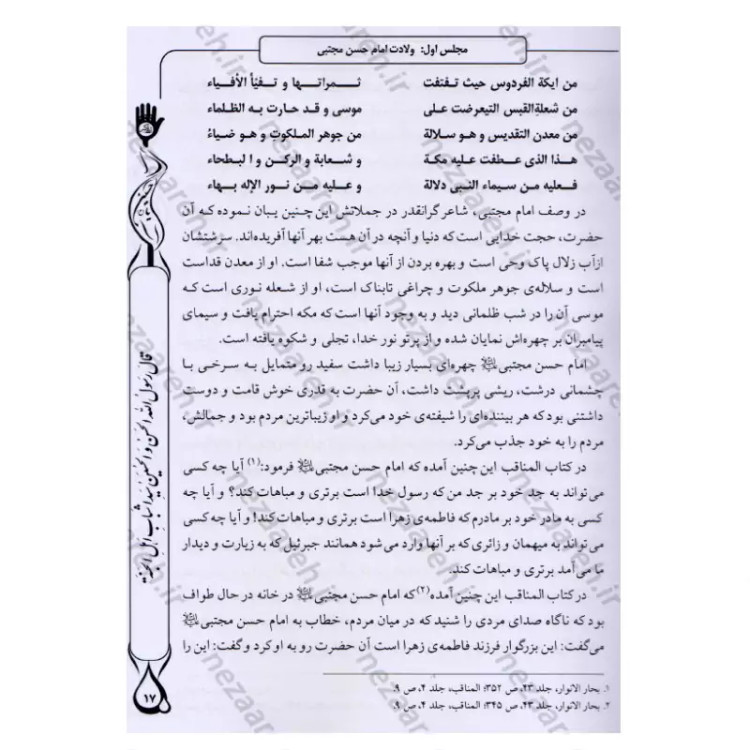 مجلس اول: ولادت امام حسن مجتبی
من ایکة الفردوس حیث تفتفت ثـمراتـهـا و تـفیّأ الأفـیاء
من شعلةالقبس التیعرضت علی موسی و قد حارت به الظلماء
من معدن التقدیس و هو سلالة من جوهر الملکوت و هو ضیاءُ
هـذا الذی عـطفت علیه مکة و شـعابة و الرکـن و ا لبطحاء
فـعلیه مـن سـیماء النبی دلالة و عـلیه مـن نـور الإله بـهاء
در وصف امام مجتبی، شاعر گرانقدر در جملاتش این چنین بیان نموده که آن
حضرت، حجت خدایی است که دنیا و آنچه در آن هست بهر آنها آفریده‌اند. سرشتشان
ازآب زلال پاک وحی است و بهره بردن از آنها موجب شفا است. او از معدن قداست
است و سلاله‌ی جوهر ملکوت و چراغی تابناک است، او از شعله نوری است که
موسی آن را در شب ظلمانی دید و به وجود آنها است که مکه احترام یافت و سیمای
پیامبران بر چهره‌اش نمایان شده و از پرتو نور خدا، تجلی و شکوه یافته است.
امام حسن مجتبی چهره‌ای بسیار زیبا داشت سفید رو متمایل به سرخی با
چشمانی درشت، ریشی پرپشت داشت، آن حضرت به قدری خوش قامت و دوست
داشتنی بود که هر بیننده‌ای را شیفته‌ی خود می‌کرد و او زیباترین مردم بود و جمالش،
مردم را به خود جذب می‌کرد.
در کتاب المناقب این چنین آمده که امام حسن مجتبی فرمود:(۱) آیا چه کسی
می‌تواند به جد خود بر جد من که رسول خدا است برتری و مباهات کند؟ و آیا چه
کسی به مادر خود بر مادرم که فاطمه‌ی زهرا است برتری و مباهات کند! و آیا چه کسی
می‌تواند به میهمان و زائری که بر آنها وارد می‌شود همانند جبرئیل که به زیارت و دیدار
ما می‌آمد برتری و مباهات کند.
در کتاب المناقب این چنین آمده(۲)که امام حسن مجتبی در خانه در حال طواف
بود که ناگاه صدای مردی را شنید که در میان مردم، خطاب به امام حسن مجتبی
می‌گفت: این بزرگوار فرزند فاطمه‌ی زهرا است آن حضرت رو به او کرد و گفت: این را
۱. بحار الانوار، جلد ۲۳، ص ۳۵۲؛ المناقب، جلد ۴، ص ۹.
۲. بحار الانوار، جلد ۴۳، ص ۳۴۵؛ المناقب، جلد ۴، ص ۹.
قال رسول الله الحسن و الحسین سیدا شباب اهل الجنة
۱۷
nezaareh.ir